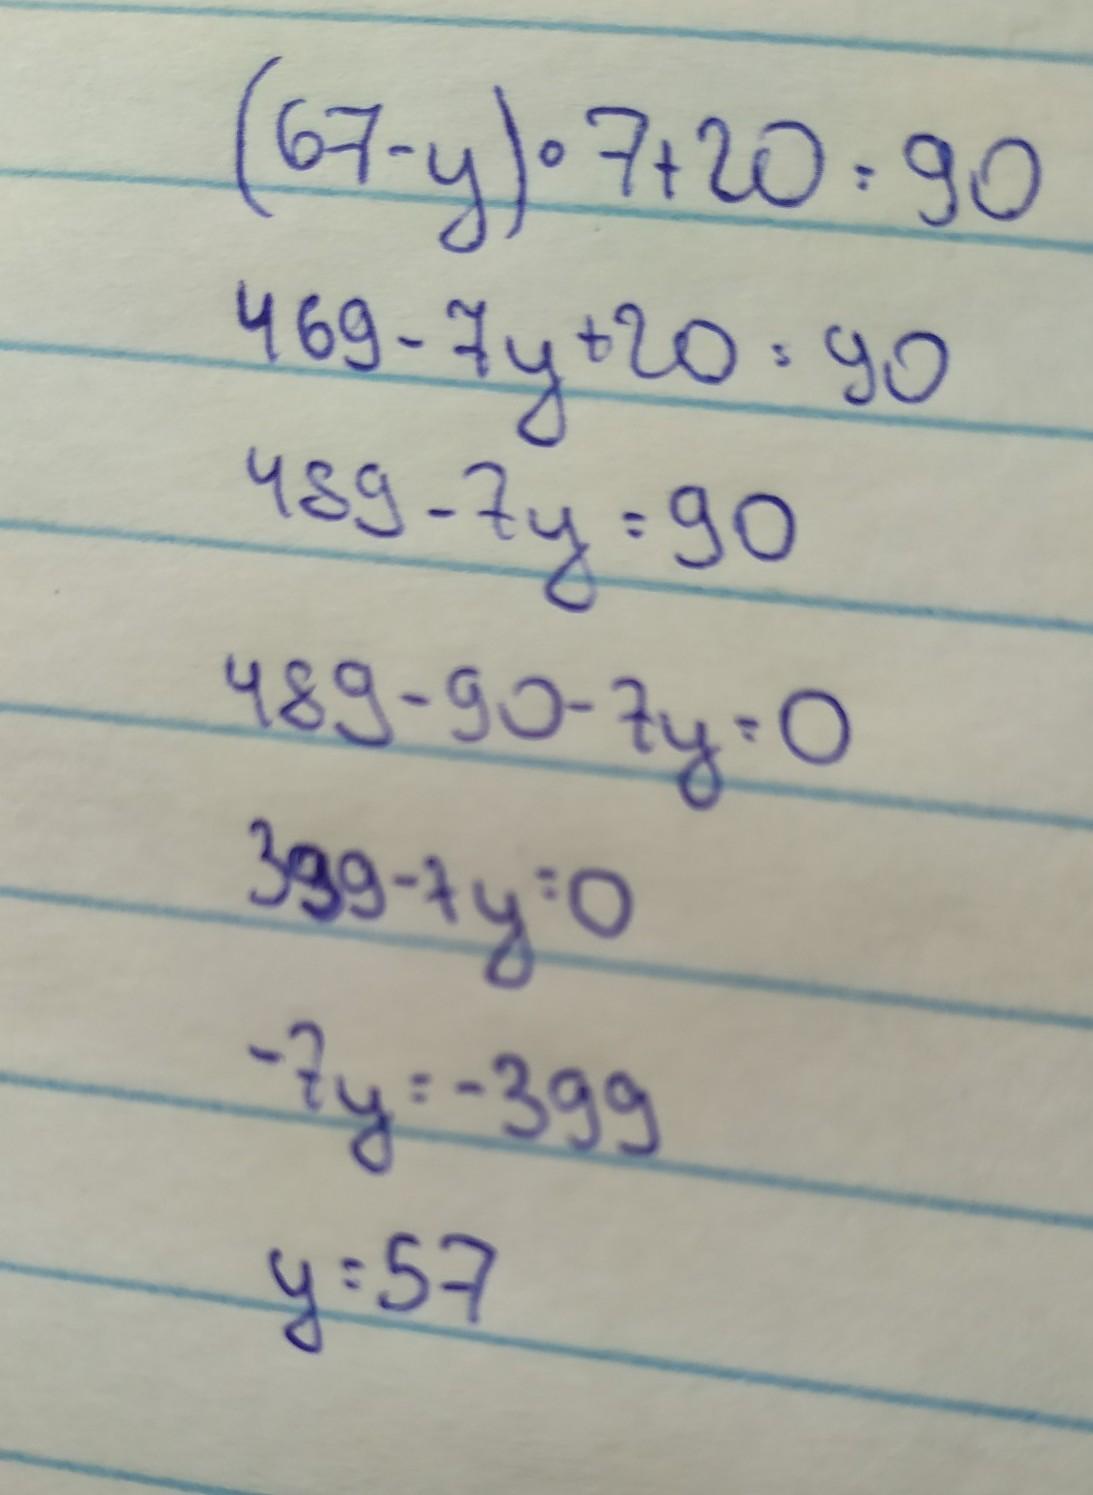 (67-y)∘7+20=90
469-7y+20=90
489-7y=90
489-90-7y=0
399-7y=0
-7y=-399
y=57